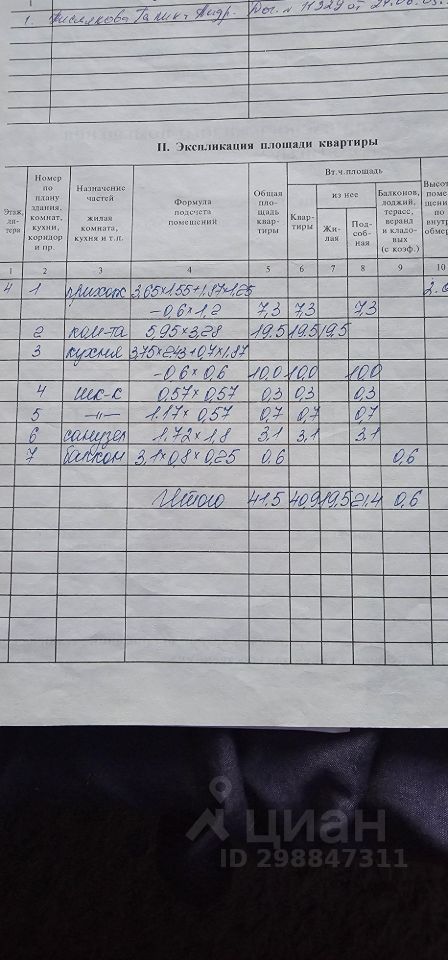 1. Кислякова Галина Андр. Дог. №
II. Экспликация площади квартиры
Этаж, ли-тера | Номер по плану здания, комнат, кухни, коридор и пр. | Назначение частей жилая комната, кухня и т.п. | Формула подсчета помещений | Общая пло-щадь квар-тиры | Вт.ч.площадь | Квар-тиры | из нее | Жи-лая | Под-соб-ная | Балконов, лоджий, терасс, веранд и кладо-вых (с коэф.)
1 2 3 4 5 6 7 8 9 10
4 1 прихож 3,65×1,55+1,87×1,25
-0,6×1,2 7,3 7,3 7,3
2 ком-та 5,95×3,28 19,5 19,5 19,5
3 кухня 3,75×2,43+0,7×1,87
-0,6×0,6 10,0 10,0 10,0
4 шк-к 0,57×0,57 0,3 0,3 0,3
5 -"- 1.17×0,57 0,7 0,7 0,7
6 санузел 1.72×1,8 3,1 3,1 3,1
7 балкон 3,1×0,8×0,25 0,6 0,6
Итого 41,5 40,9 19,5 21,4 0,6
циан
ID 298847311